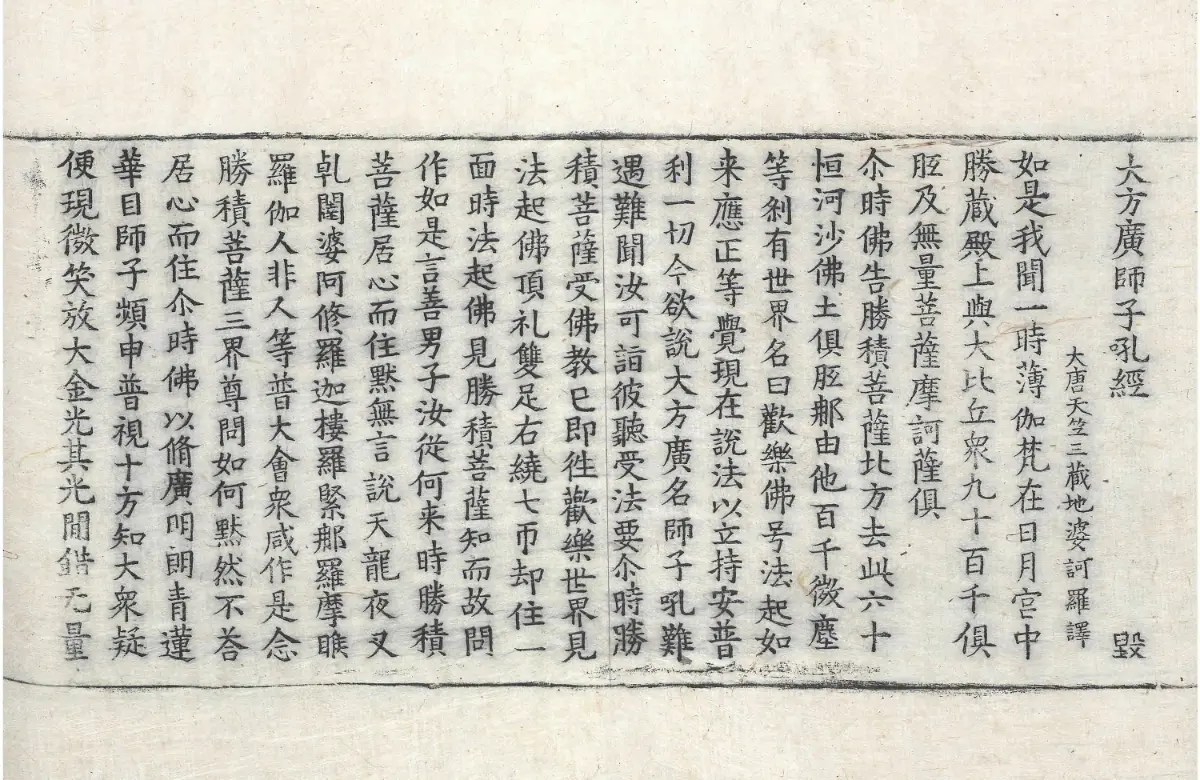 大方廣師子吼經 毀
大唐天竺三藏地婆訶羅譯
如是我聞一時薄伽梵在日月宮中
勝蔵殿上與大比丘衆九十百千俱
胝及無量菩薩摩訶薩俱
尒時佛告勝積菩薩北方去此六十
恒河沙佛土俱胝郍由他百千微塵
等刹有世界名曰歡樂佛号法起如
来應正等覺現在說法以立持安普
利一切今欲說大方廣名師子吼難
遇難聞汝可詣彼聽受法要尒時勝
積菩薩受佛教已即徃歡樂世界見
法起佛頂礼雙足右繞七帀却住一
面時法起佛見勝積菩薩知而故問
作如是言善男子汝從何来時勝積
菩薩居心而住默無言說天龍夜叉
乹闥婆阿修羅迦樓羅緊郍羅摩睺
羅伽人非人等普大會衆咸作是念
勝積菩薩三界尊問如何默然不荅
居心而住尒時佛以脩廣明朗青蓮
華目師子頻申普視十方知大衆疑
便現微笑放大金光其光閒錯无量